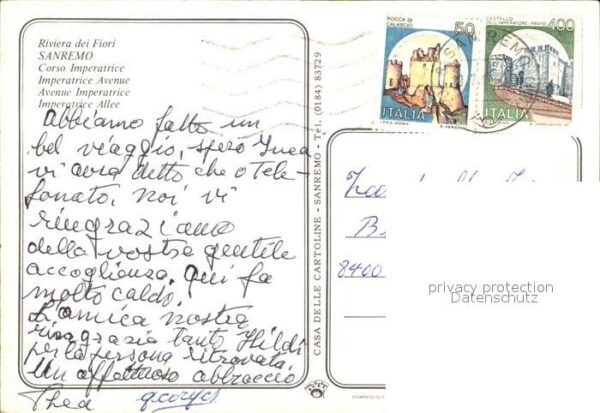 Riviera dei Fiori
SANREMO
Corso Imperatrice
Imperatrice Avenue
Avenue Imperatrice
Imperatrice Allee
Abbiamo fatto un
bel viaggio, spero
vi avra detto che o Tele-
fonato, noi vi
ringraziamo
della vostra gentile
accoglienza. qui fa
molto caldo.
L'amica nostra
ringrazia tanto Hildi
per la persona ritrovata
un affettuoso abbraccio
Thea
CASA DELLE CARTOLINE - SANREMO - Tel. (0184) 83729
ROCCA DI
CALASCIO
50
ITALIA
CASTELLO
DELL'IMPERATORE - PRATO
400
ITALIA
8400
privacy protection
Datenschutz